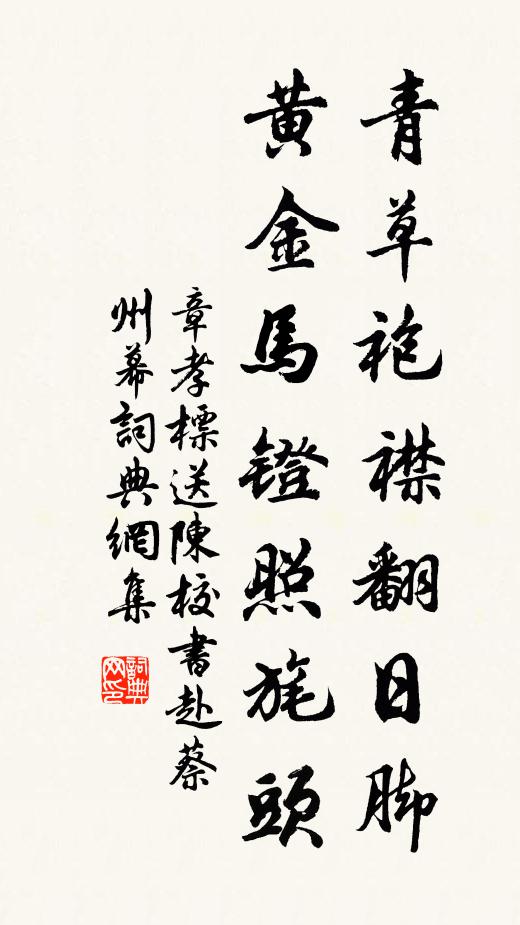 青草袍襟翻日脚
黄金馬鐙照旄頭
章孝標送陳校書赴蔡
州幕詞典網集
詞典
网印